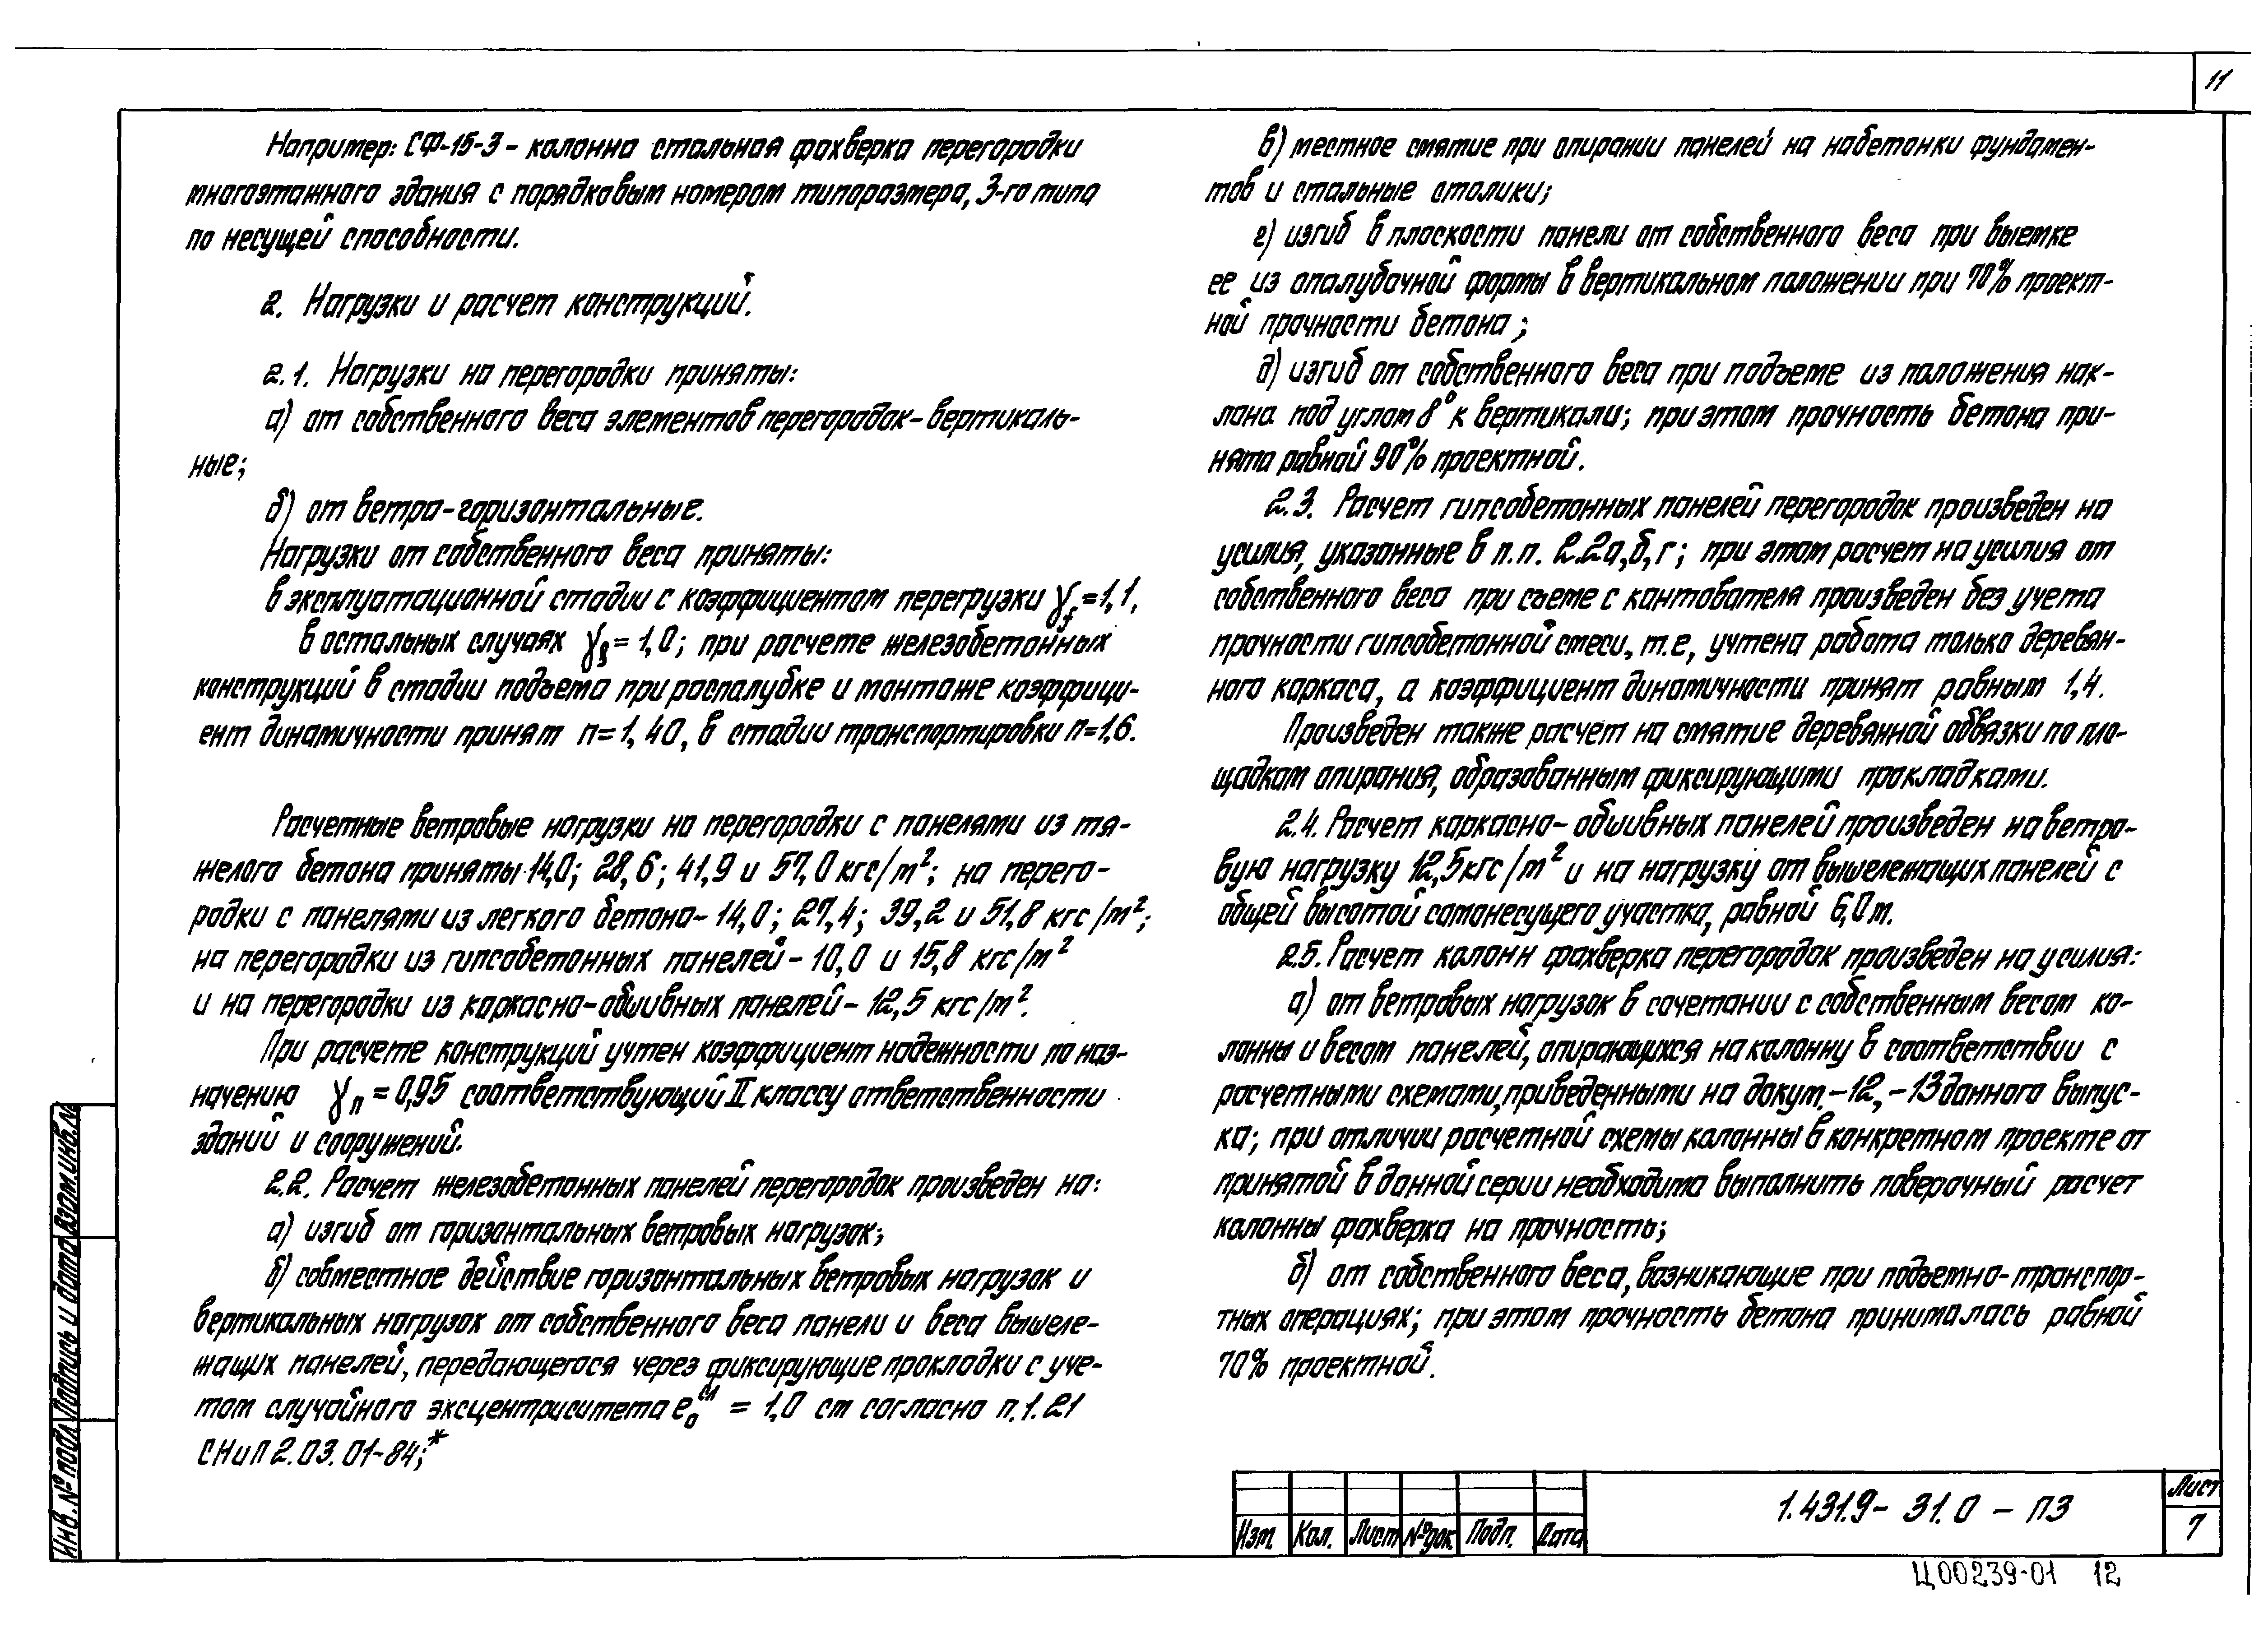 11
Например: СФ-15-3 - колонна стальная фахверка перегородки
многоэтажного здания с порядковым номером типоразмера, 3-го типа
по несущей способности.
2. Нагрузки и расчет конструкций.
2.1. Нагрузки на перегородки приняты:
а) от собственного веса элементов перегородок - вертикаль-
ные;
б) от ветра - горизонтальные.
Нагрузки от собственного веса приняты:
в эксплуатационной стадии с коэффициентом перегрузки γf = 1,1,
в остальных случаях γf = 1,0; при расчете железобетонных
конструкций в стадии подъема при распалубке и монтаже коэффици-
ент динамичности принят п = 1,40, в стадии транспортировки п=1,6.
Расчетные ветровые нагрузки на перегородки с панелями из тя-
желого бетона приняты 14,0; 28,6; 41,9 и 57,0 кгс/м²; на перего-
родки с панелями из легкого бетона - 14,0; 27,4; 39,2 и 51,8 кгс/м²;
на перегородки из гипсобетонных панелей - 10,0 и 15,8 кгс/м²
и на перегородки из каркасно-обшивных панелей - 12,5 кгс/м².
При расчете конструкций учтен коэффициент надежности по наз-
начению γп = 0,95 соответствующий II классу ответственности
зданий и сооружений.
2.2. Расчет железобетонных панелей перегородок произведен на:
а) изгиб от горизонтальных ветровых нагрузок;
б) совместное действие горизонтальных ветровых нагрузок и
вертикальных нагрузок от собственного веса панели и веса вышеле-
жащих панелей, передающегося через фиксирующие прокладки с уче-
том случайного эксцентриситета eₒᶜᴫ = 1,0 см согласно п.1.21
СНиП 2.03.01-84;*
в) местное смятие при опирании панелей на набетонки фундамен-
тов и стальные столики;
г) изгиб в плоскости панели от собственного веса при выемке
ее из опалубочной формы в вертикальном положении при 70% проект-
ной прочности бетона;
д) изгиб от собственного веса при подъеме из положения нак-
лона под углом 8° к вертикали; при этом прочность бетона при-
нята равной 90% проектной.
2.3. Расчет гипсобетонных панелей перегородок произведен на
усилия, указанные в п.п. 2.2а,б,г; при этом расчет на усилия от
собственного веса при съеме с кантователя произведен без учета
прочности гипсобетонной смеси, т.е, учтена работа только деревян-
ного каркаса, а коэффициент динамичности принят равным 1,4.
Произведен также расчет на смятие деревянной обвязки по пло-
щадкам опирания, образованным фиксирующими прокладками.
2.4. Расчет каркасно-обшивных панелей произведен на ветро-
вую нагрузку 12,5 кгс/м² и на нагрузку от вышележащих панелей с
общей высотой самонесущего участка, равной 6,0м.
2.5. Расчет колонн фахверка перегородок произведен на усилия:
а) от ветровых нагрузок в сочетании с собственным весом ко-
лонны и весом панелей, опирающихся на колонну в соответствии с
расчетными схемами, приведенными на докум. -12, -13 данного выпус-
ка; при отличии расчетной схемы колонны в конкретном проекте от
принятой в данной серии необходимо выполнить поверочный расчет
колонны фахверка на прочность;
б) от собственного веса, возникающие при подъемно-транспор-
тных операциях; при этом прочность бетона принималась равной
70% проектной.
Инв. № подл Подпись и дата Взам.инв.№
Изм. Кол. Лист №док Подп. Дата
1.431.9-31.0-ПЗ
Лист
7
Ц00239-01 12